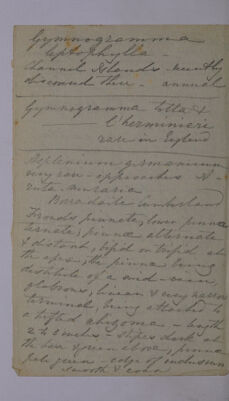 Gymnogramma
leptophylla -
Channel Islands - recently
discovered there - annual
Gymnogramma totta &
L'herminieri
rare in England
Asplenium germanicum
very rare - approaches A -
ruta muraria
Borrodaile Cumberland
Fronds pinnate, lower pinnae
ternate, pinnae alternate
& distant, bifid or trifid at
the apex, the pinnae being
destitute of a mid-vein,
glabrous, linear & very narrow
terminal, being attached to
a tufted rhizome - length
2 to 6 inches - stipes dark at
the base & green above, pinnae
pale green - edge of indusium
smooth & even